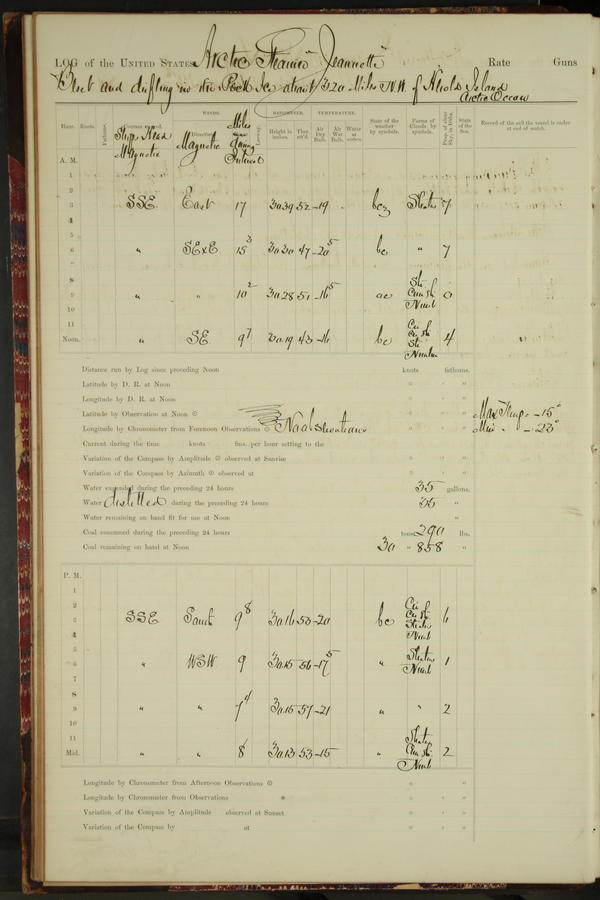 LOG of the UNITED STATES Arctic Steamer "Jeannette" Rate Guns
Beset and drifting in the Pack Ice about 320 Miles N.W. of Herald Island
Arctic Ocean
WINDS. BAROMETER. TEMPERATURE.
Hour. Knots. Fathoms. Courses steered. Direction. Leeway. Height in inches. Ther. att'd. Air Dry Bulb. Air Wet Bulb. Water at surface. State of the weather by symbols. Forms of Clouds by symbols. Prop. of clear Sky, in 10ths. State of the Sea. Record of the sail the vessel is under at end of watch.
Ship's Head Magnetic Magnetic Miles during Interval
A. M.
1
2
3 SSE East 17 30.39 52 -19 Stratus 7
4
5
6 " SExE 15 3 30.30 47 -20 5 bc " 7
7
8
9 " " 10 2 30.28 51 -16 5 Str Cum St Nimb 0
10
11
Noon. " SE 9 7 30.19 43 -16 bc Cir St Cir St Str Nimbus 4
Distance run by Log since preceding Noon knots fathoms.
Latitude by D. R. at Noon
Longitude by D. R. at Noon
Latitude by Observation at Noon Max Temp. -15°
Longitude by Chronometer from Forenoon Observations No observations Min " -23°
Current during the time knots fms. per hour setting to the
Variation of the Compass by Amplitude observed at Sunrise
Variation of the Compass by Azimuth observed at
Water expended during the preceding 24 hours 35 gallons.
Water distilled during the preceding 24 hours 35 "
Water remaining on hand fit for use at Noon "
Coal consumed during the preceding 24 hours tons 290 lbs.
Coal remaining on hand at Noon 30 " 858 "
P. M.
1
2
3 SSE South 9 8 30.16 53 -20 bc Cir St Cir St Stratus Nimb 6
4
5
6 " WSW 9 30.15 56 -17 5 " Stratus Nimb 1
7
8
9 " " 7 4 30.15 57 -21 " " 2
10
11
Mid. " " 8 30.13 53 -15 " Stratus Cum St Nimb 2
Longitude by Chronometer from Afternoon Observations
Longitude by Chronometer from Observations
Variation of the Compass by Amplitude observed at Sunset
Variation of the Compass by at